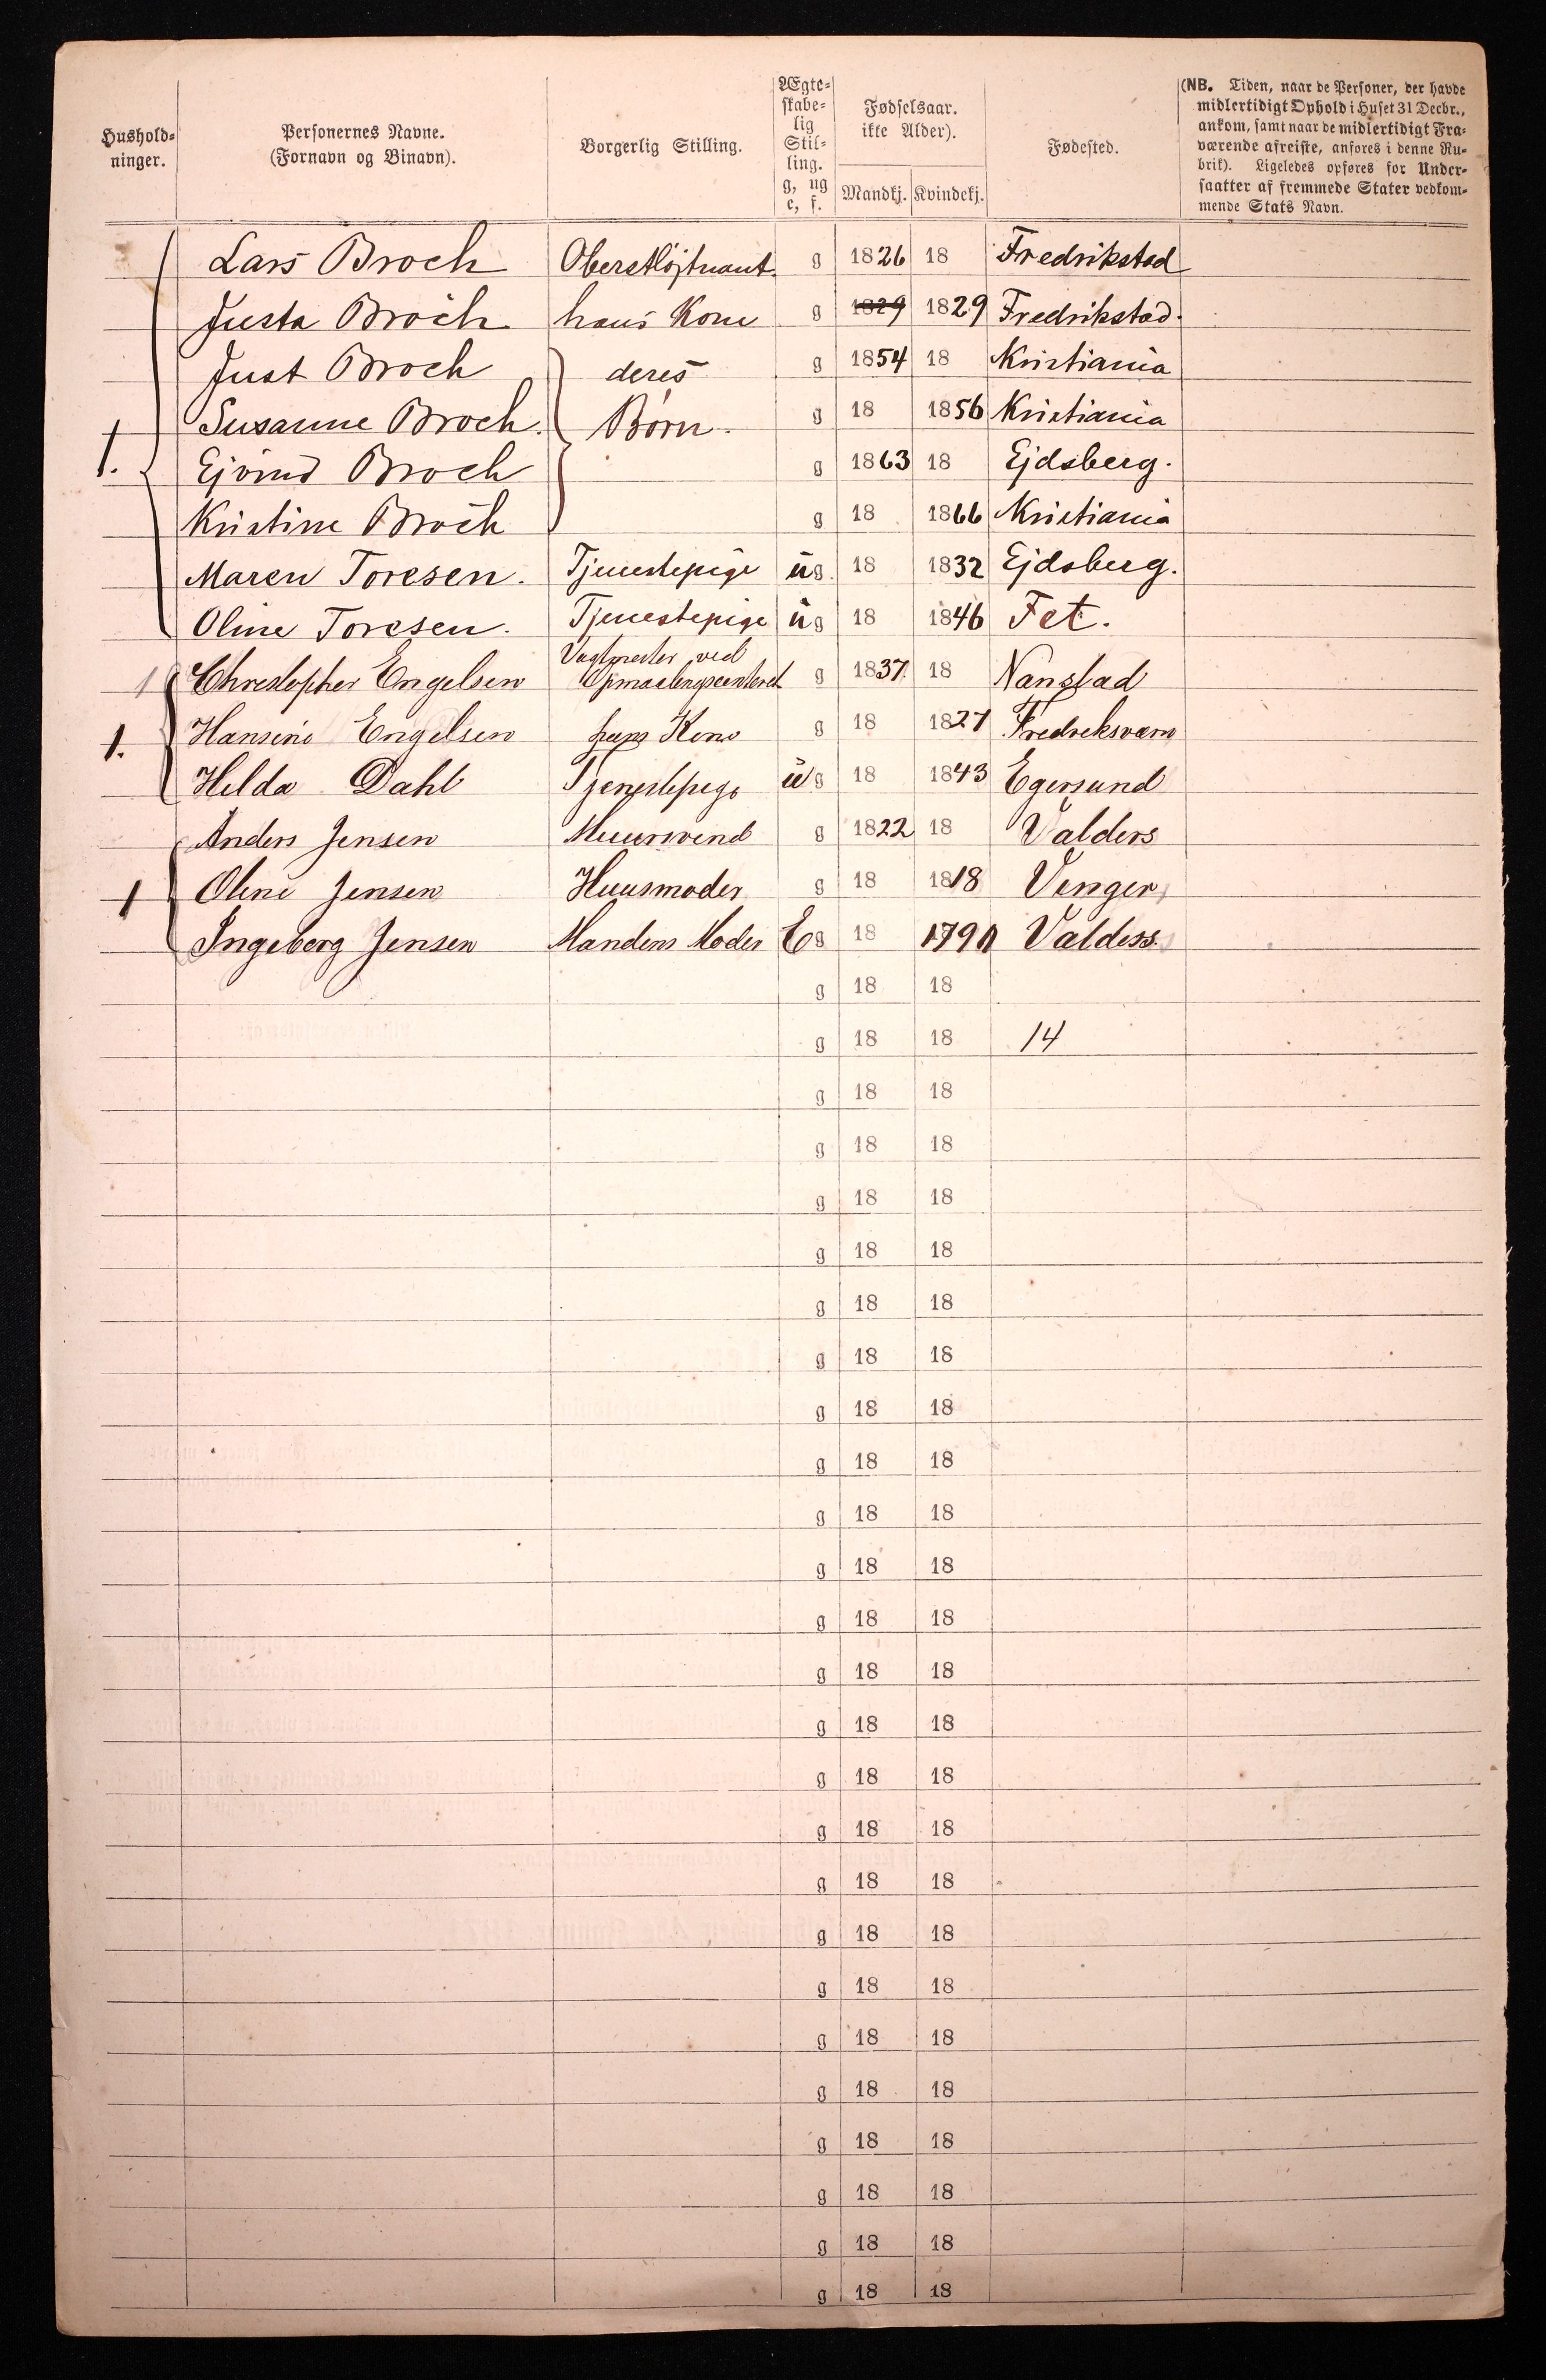 Hushold-
ninger.
Personernes Navne.
(Fornavn og Binavn).
Borgerlig Stilling.
Ægte-
skabe-
lig
Stil-
ling.
g, ug
e, f.
Fødselsaar.
ikke Alder).
Mandkj. Kvindekj.
Fødested.
(NB. Tiden, naar de Personer, der havde
midlertidigt Ophold i Huset 31 Decbr.,
ankom, samt naar de midlertidigt Fra-
værende afreiste, anføres i denne Ru-
brik). Ligeledes opføres for Under-
saatter af fremmede Stater vedkom-
mende Stats Navn.
Lars Broch Oberstløjtnant. g 1826 18 Fredrikstad
Justa Broch hans Kone g 1829 1829 Fredrikstad.
Just Broch deres g 1854 18 Kristiania
1. Susanne Broch. Børn. g 18 1856 Kristiania
Ejvind Broch g 1863 18 Ejdsberg.
Kristine Broch g 18 1866 Kristiania
Maren Toresen. Tjenestepige ug. 18 1832 Ejdsberg.
Oline Toresen. Tjenestepige ug 18 1846 Fet.
Vagtmester ved
1 Christopher Engelsen Opmaalingscontoret g 1837. 18 Nanstad
1. Hansine Engelsen hans Kone g 18 1827 Fredriksværn
Hilda Dahl Tjenestepige ug 18 1843 Egersund
Anders Jensen Muursvend g 1822 18 Valders
1 Oline Jensen Huusmoder g 18 1818 Vinger
Ingeborg Jensen Mandens Moder Eg 18 1790 Valders.
g 18 18
g 18 18 14
g 18 18
g 18 18
g 18 18
g 18 18
g 18 18
g 18 18
g 18 18
g 18 18
g 18 18
g 18 18
g 18 18
g 18 18
g 18 18
g 18 18
g 18 18
g 18 18
g 18 18
g 18 18
g 18 18
g 18 18
g 18 18
g 18 18
g 18 18
g 18 18